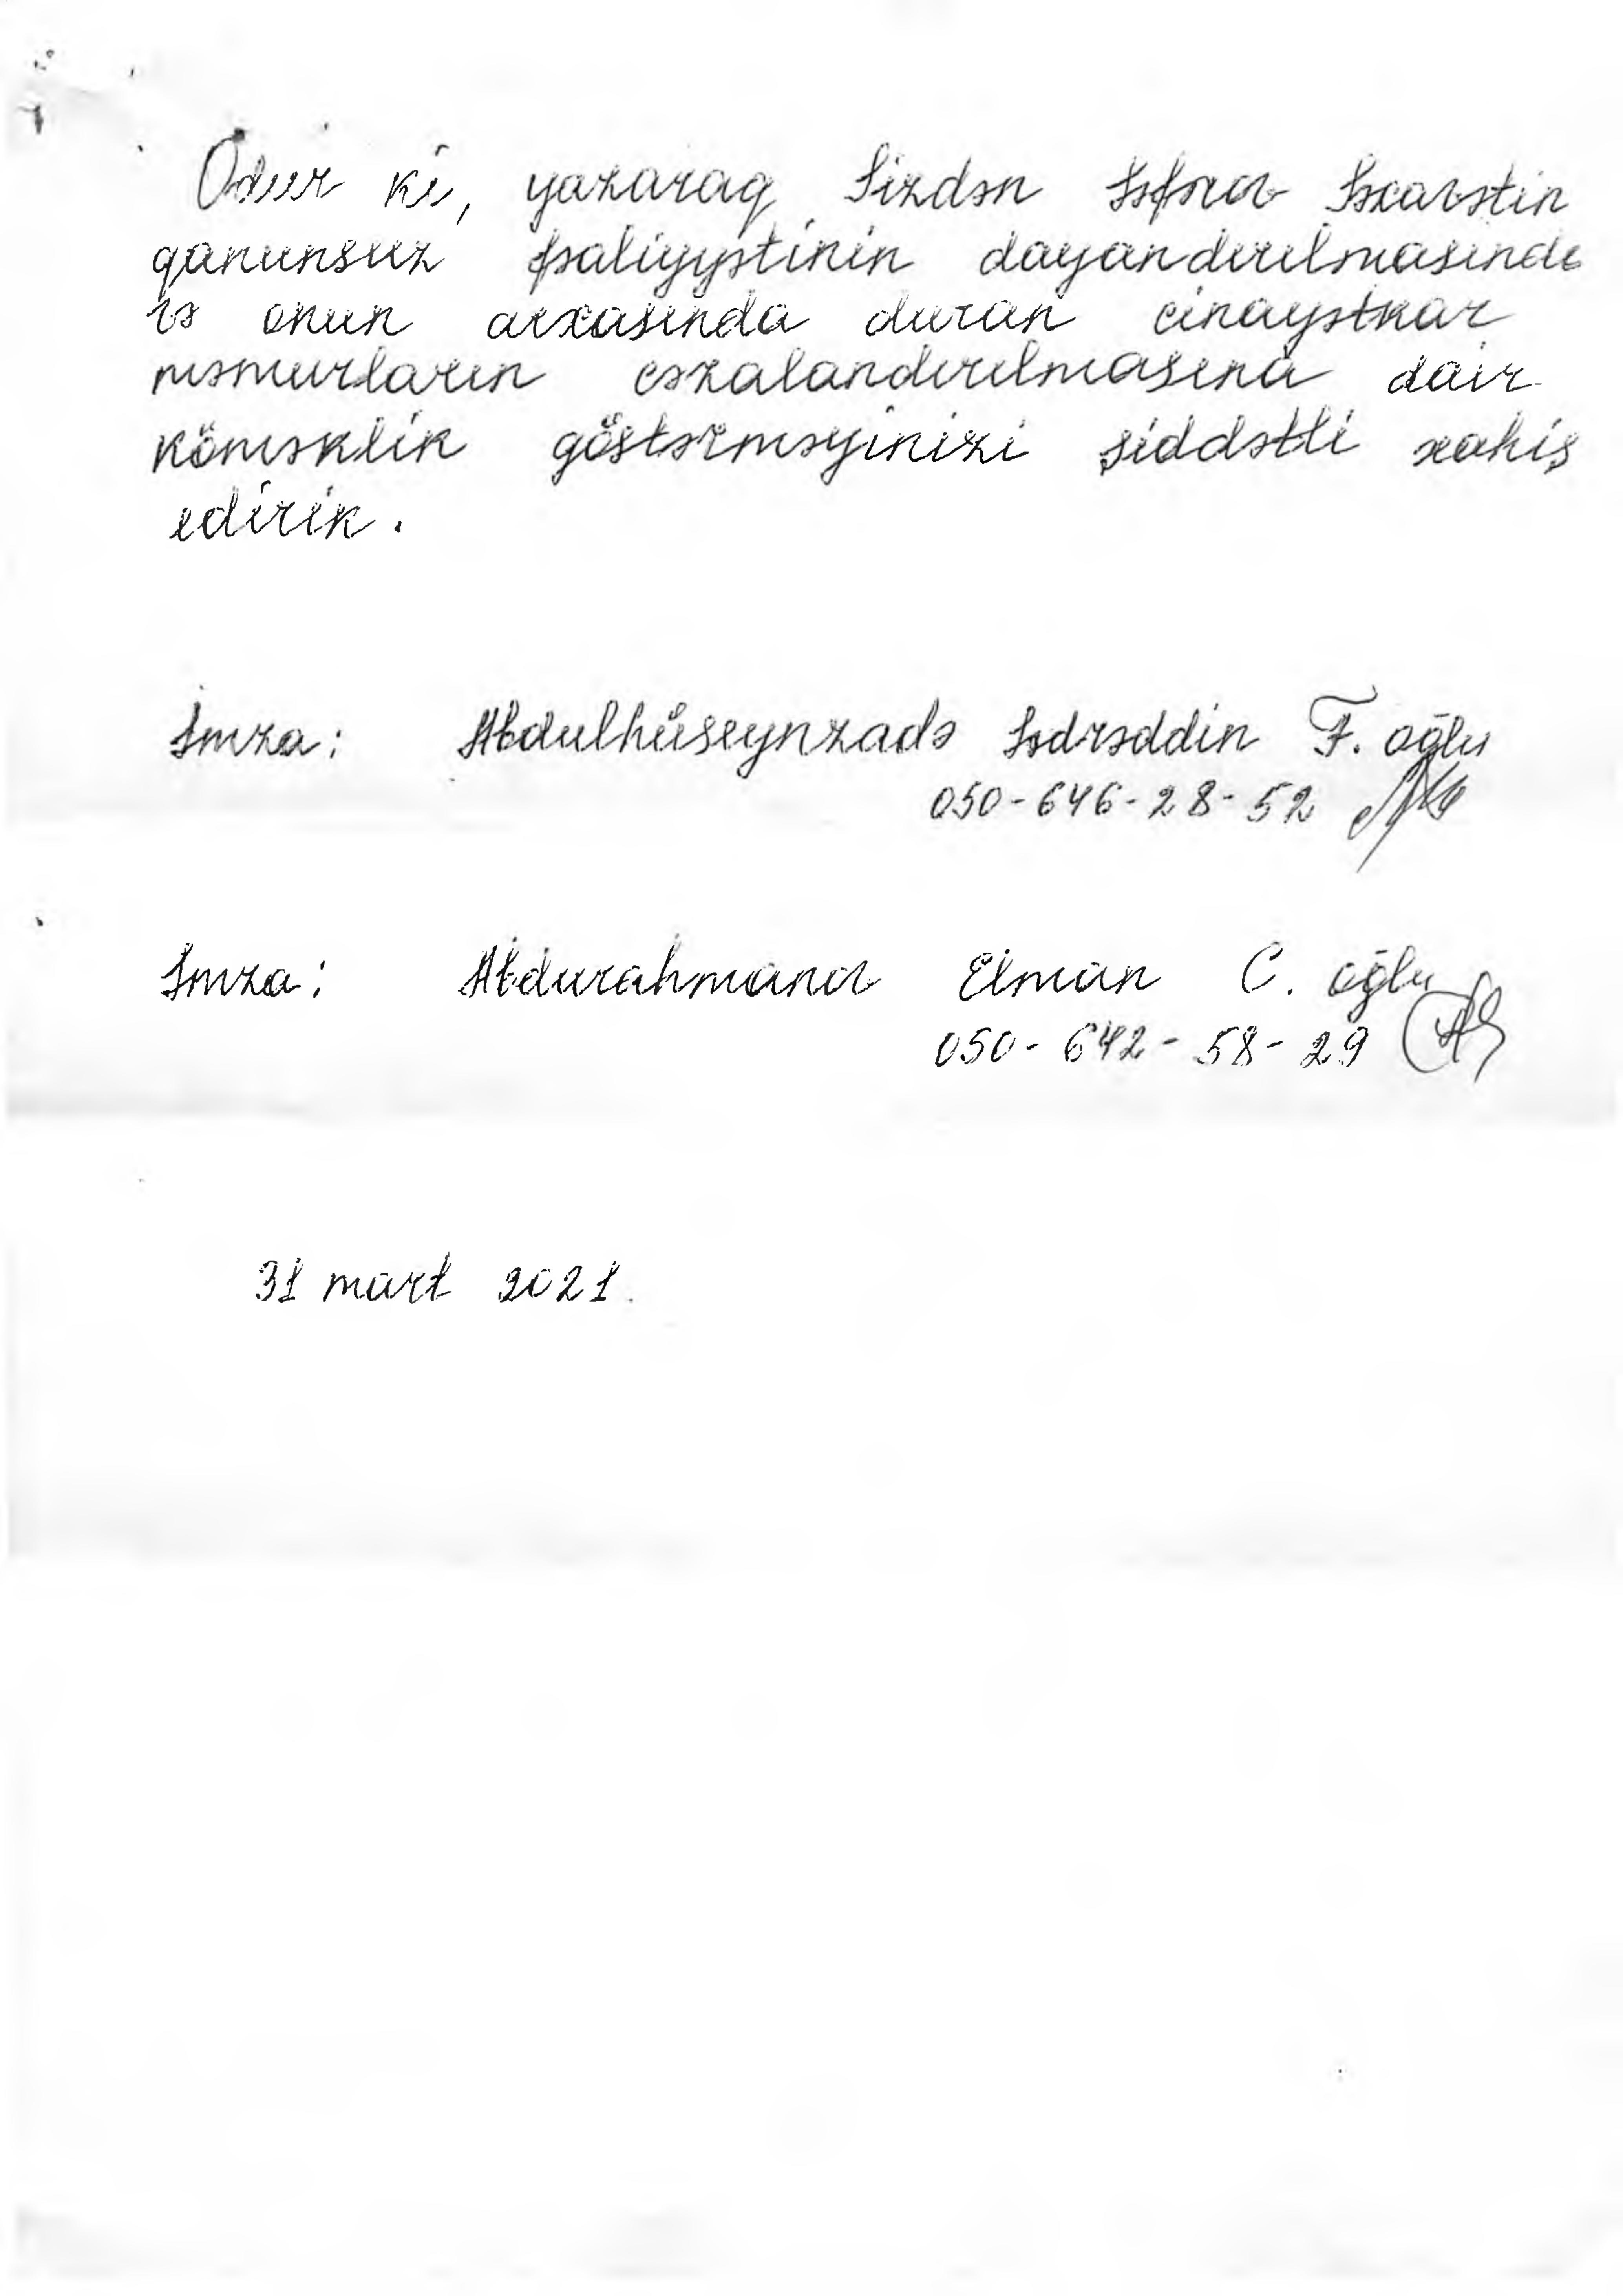 Odur ki, yazaraq Sizdən Səfərov Səxavətin
qanunsuz fəaliyyətinin dayandırılmasında
və onun arxasında duran cinayətkar
məmurların cəzalandırılmasına dair
köməklik göstərməyinizi şiddətli xahiş
edirik.
İmza: Abdulhüseynzadə Sədrəddin F. oğlu
050-646-28-52
İmza: Abdurahmanov Elman C. oğlu
050-642-58-29
31 mart 2021.